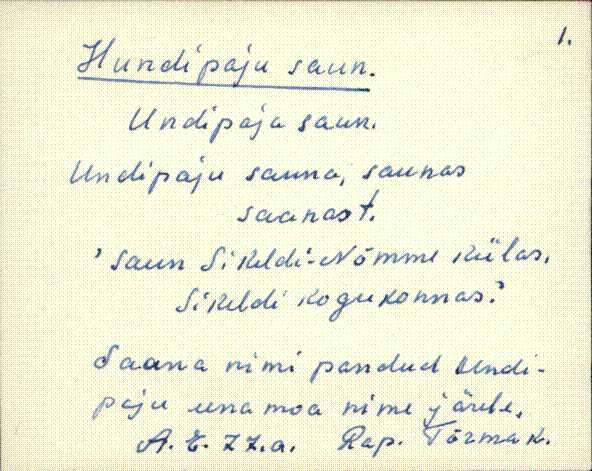 1.
Hundipaju saun.
Undipaju saun.
Undipaju sauna, saunas
saanast.
'Saun Sikeldi-Nõmme külas,
Sikeldi kogukonnas.'
Saana nimi pandud Undi-
paju unamoa nime järele,
A. E. 77.a. Rap. Tõrma k.